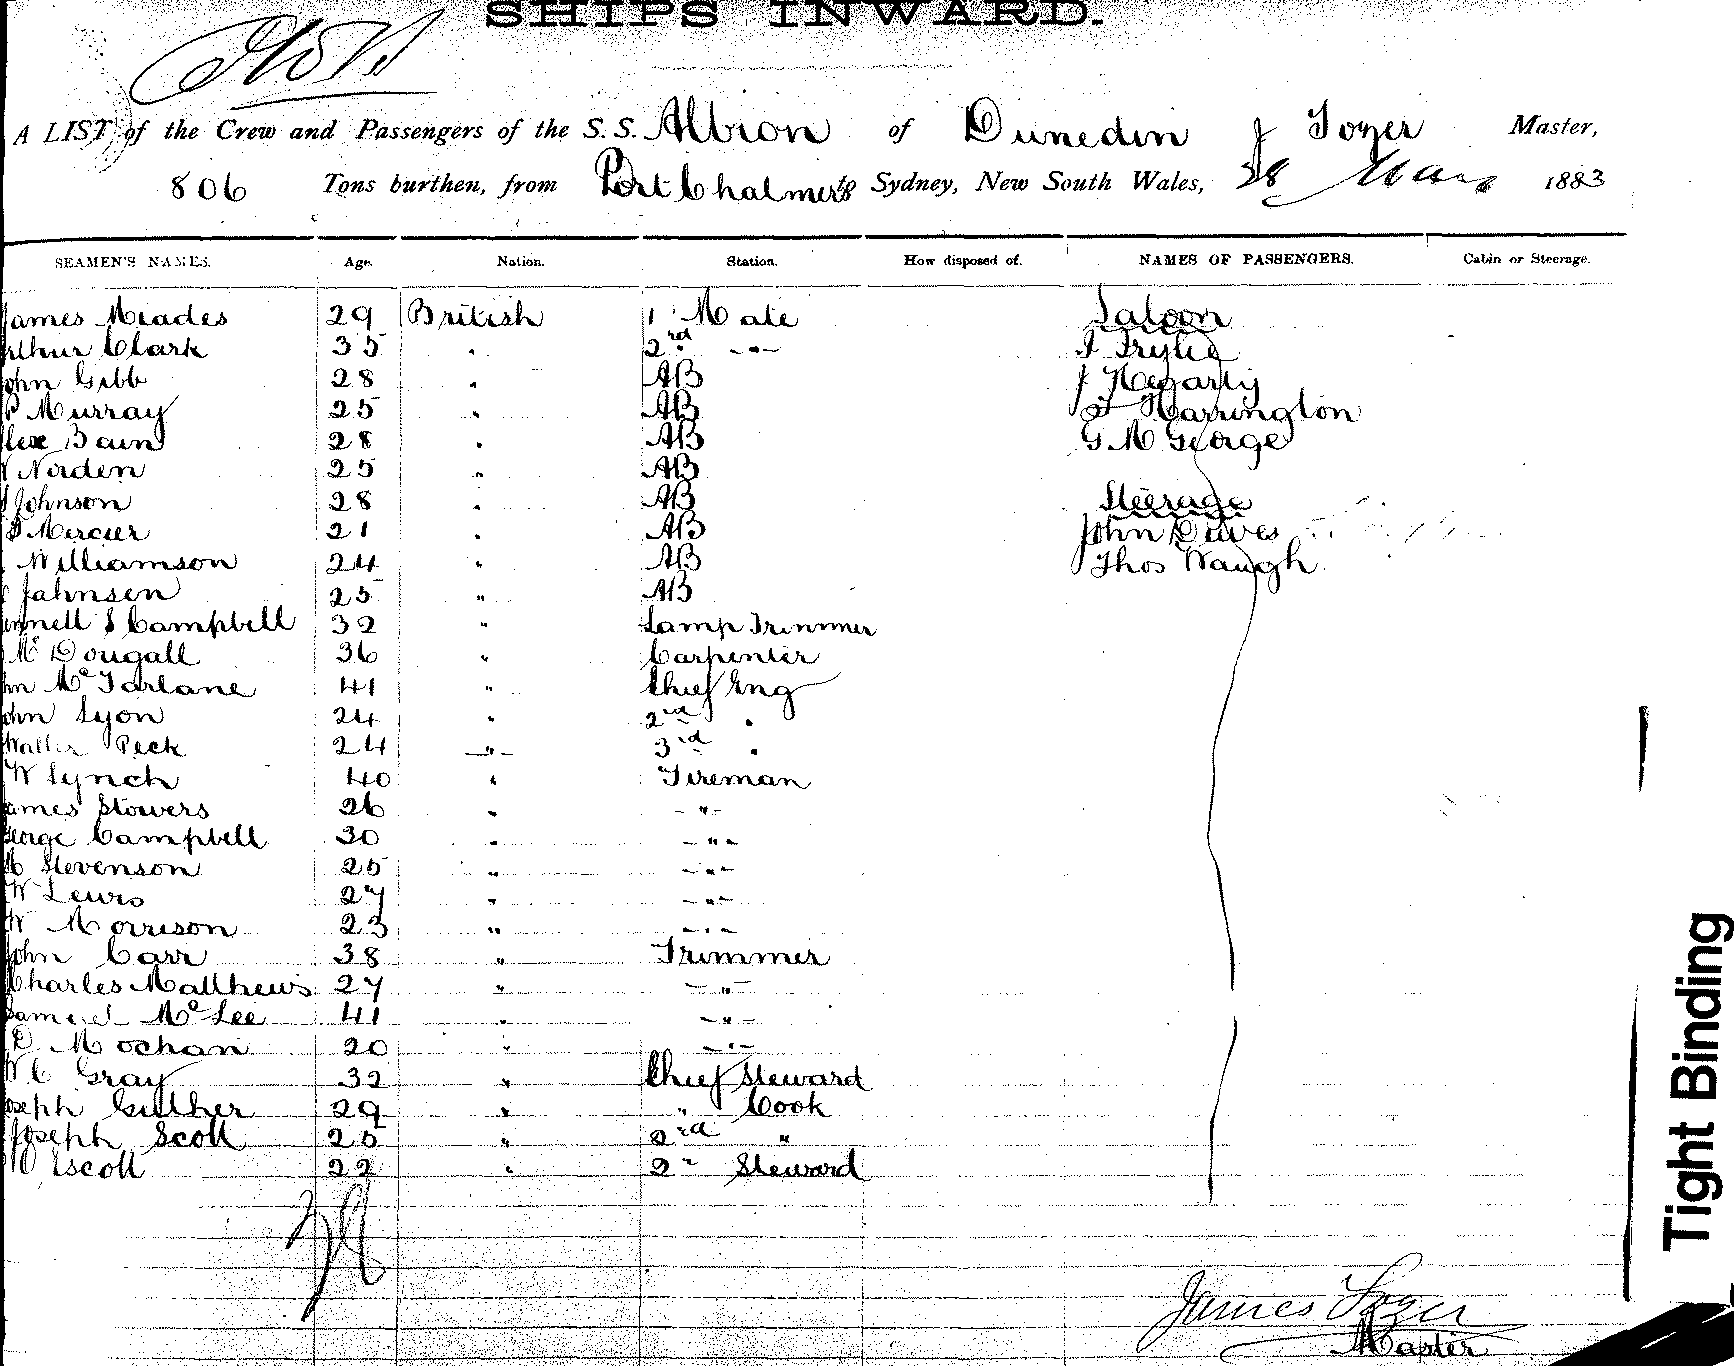 SHIPS INWARD.
A LIST of the Crew and Passengers of the S.S. Albion of Dunedin J Tozer Master,
806 Tons burthen, from Port Chalmers to Sydney, New South Wales, 28 1883
SEAMEN'S NAMES. Age. Nation. Station. How disposed of. NAMES OF PASSENGERS. Cabin or Steerage.
James Meades 29 British 1 Mate Saloon
Arthur Clark 35 " 2nd -"-
John Gibb 28 " AB J Hegarty
P Murray 25 " AB Harrington
Alex Bain 28 " AB G M George
Norden 25 " AB
Johnson 28 " AB Steerage
Mercier 21 " AB John Daves
Williamson 24 " AB Thos Waugh
Jahnsen 25 " AB
Campbell 32 " Lamp Trimmer
McDougall 36 " Carpenter
John McFarlane 41 " Chief Eng
John Lyon 24 " 2nd "
Walter Peck 24 -"- 3rd "
W Lynch 40 " Fireman
James Stowers 26 " -"-
George Campbell 30 " -"-
Stevenson 25 " -"-
W Lewis 27 " -"-
W Morrison 23 " -"-
John Carr 38 " Trimmer
Charles Matthews 27 " -"-
McLee 41 " -"-
D Mochan 20 " -"-
W C Gray 32 " Chief Steward
Joseph Guther 29 " " Cook
Joseph Scott 25 " 2nd "
Escott 22 " 2" Steward
29
James Tozer
Master
Tight Binding